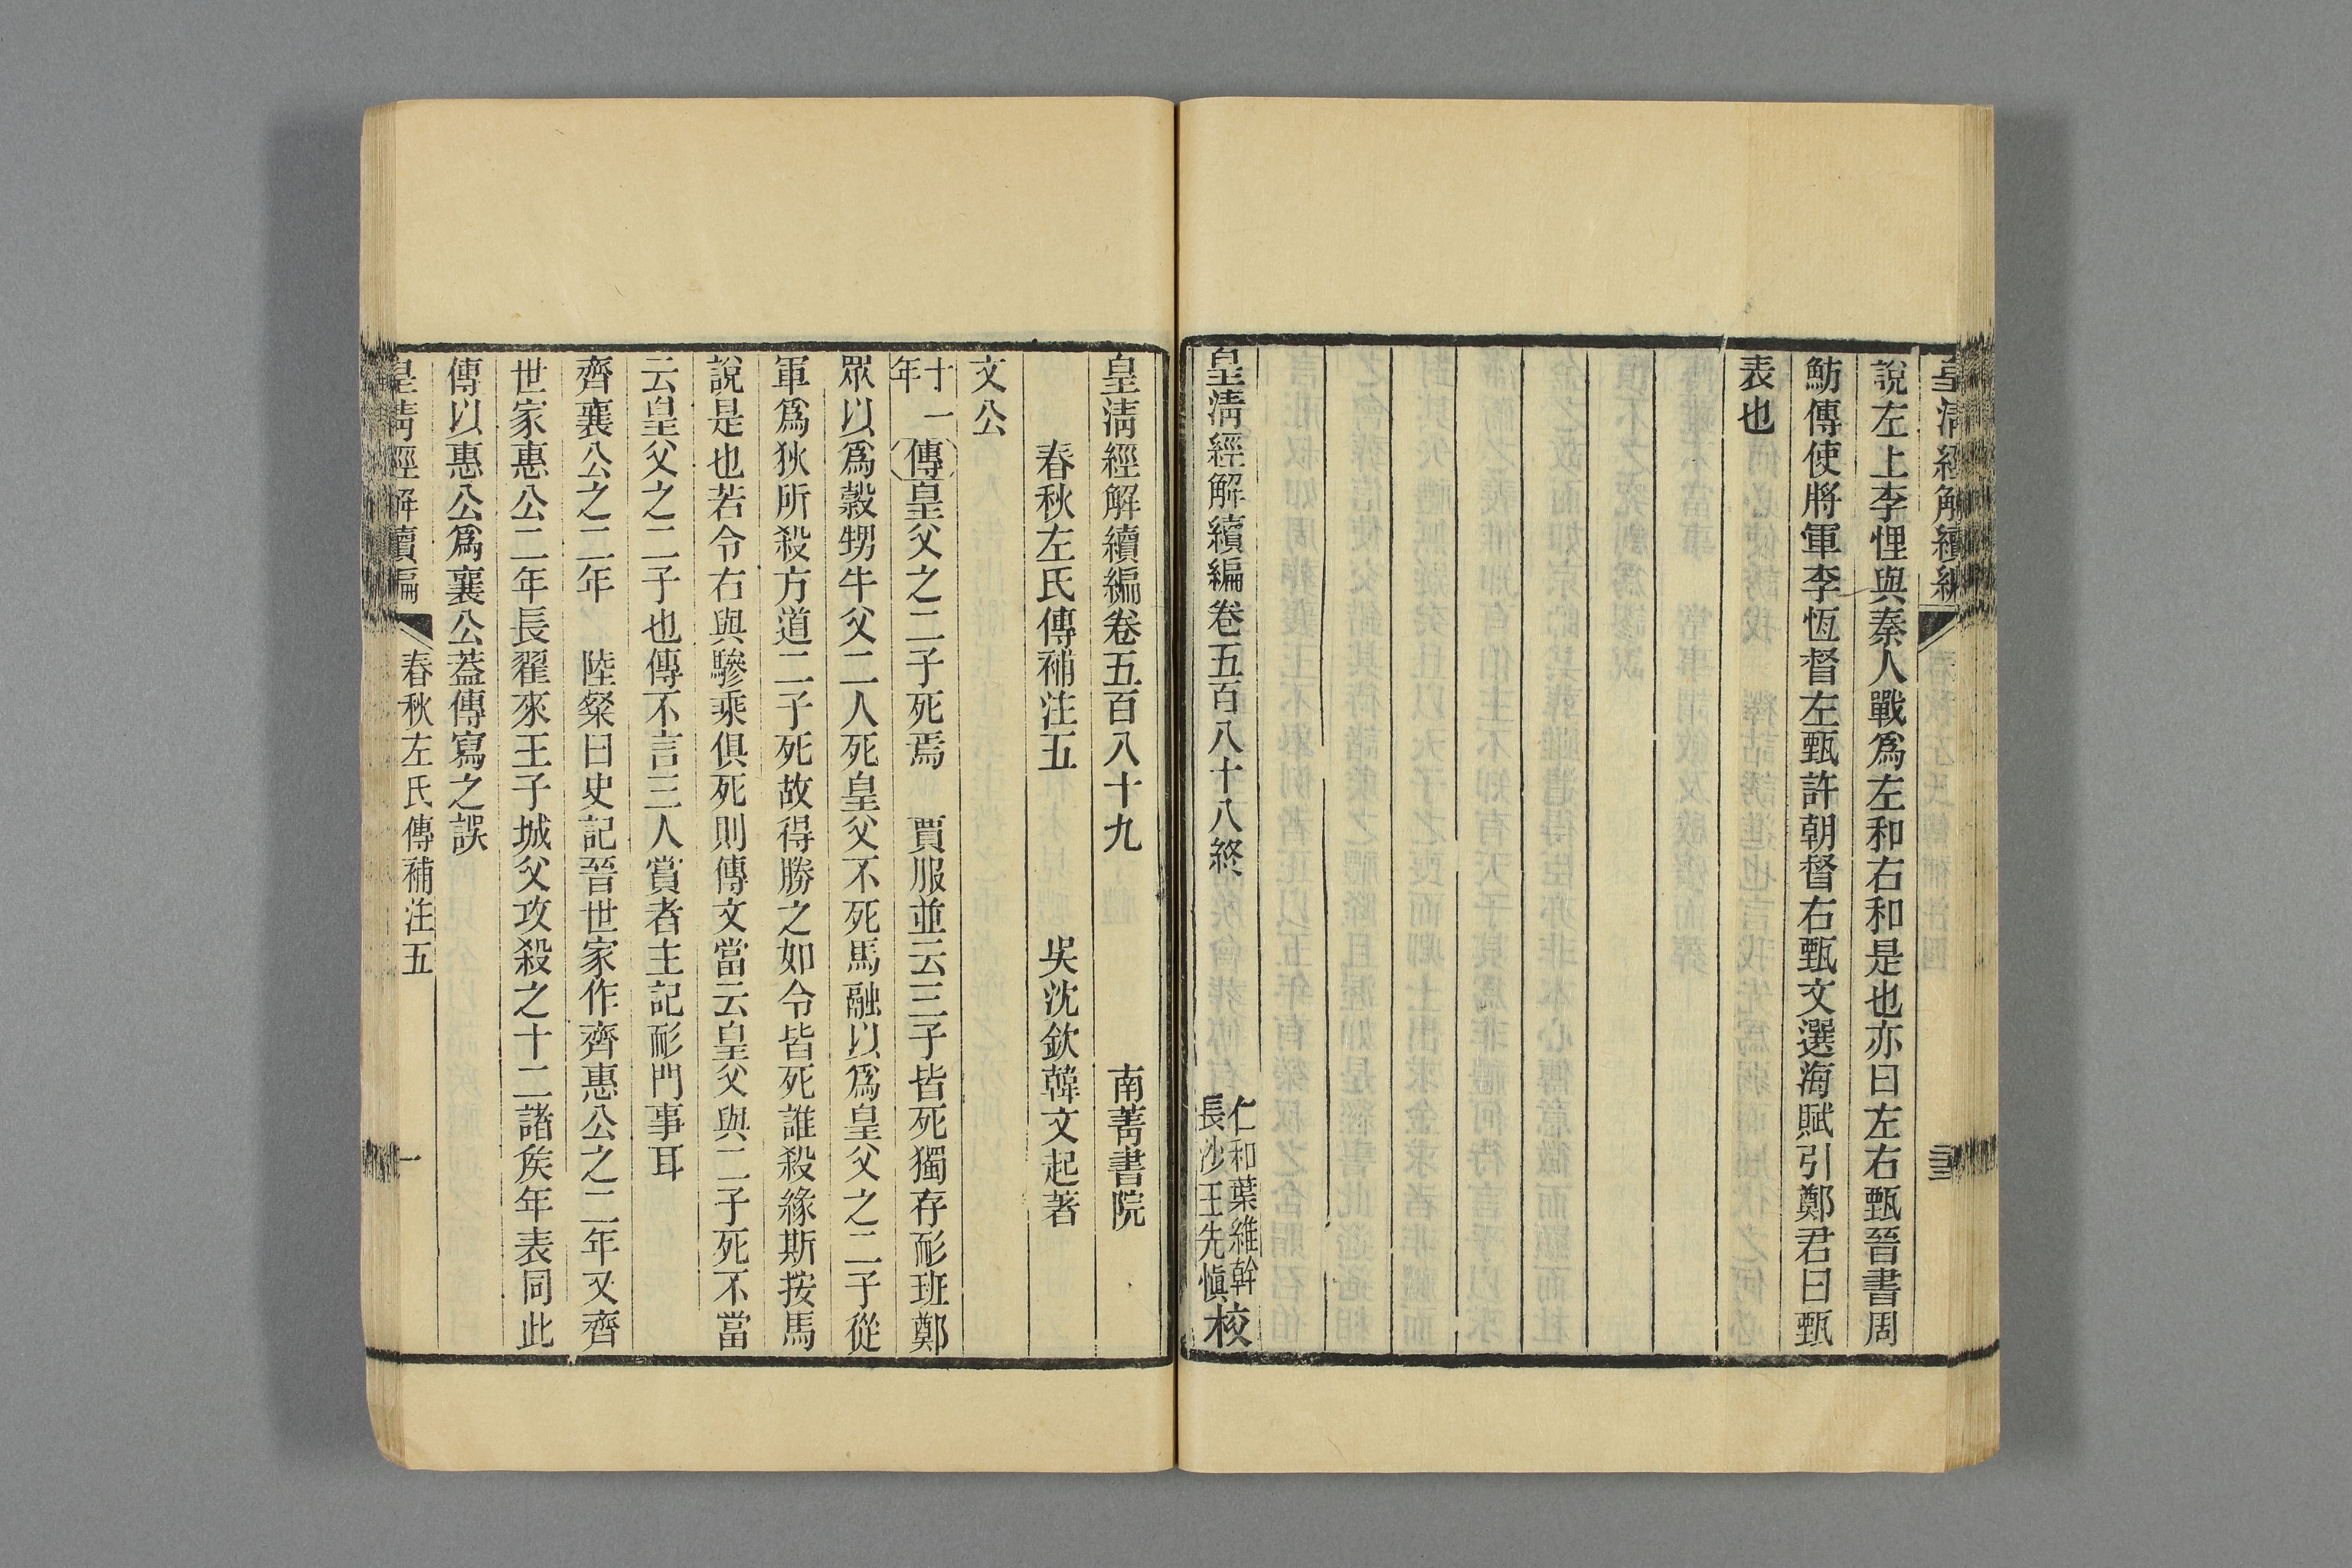 皇淸經解續編
三
說左上李悝與秦人戰爲左和右和是也亦曰左右甄晉書周
魴傳使將軍李恆督左甄許朝督右甄文選海賦引鄭君曰甄
表也
皇淸經解續編卷五百八十八終
仁和葉維幹
長沙王先愼
校
皇淸經解續編卷五百八十九
南菁書院
春秋左氏傳補注五
吳沈欽韓文起著
文公
十一年
傳皇父之二子死焉
賈服並云三子皆死獨存耏班鄭
眾以爲穀甥牛父二人死皇父不死馬融以爲皇父之二子從
軍爲狄所殺方道二子死故得勝之如令皆死誰殺緣斯按馬
說是也若令右與驂乘俱死則傳文當云皇父與二子死不當
云皇父之二子也傳不言三人賞者主記耏門事耳
齊襄公之二年
陸粲曰史記晉世家作齊惠公之二年又齊
世家惠公二年長翟來王子城父攻殺之十二諸矦年表同此
傳以惠公爲襄公蓋傳寫之誤
皇淸經解續編
春秋左氏傳補注五
一